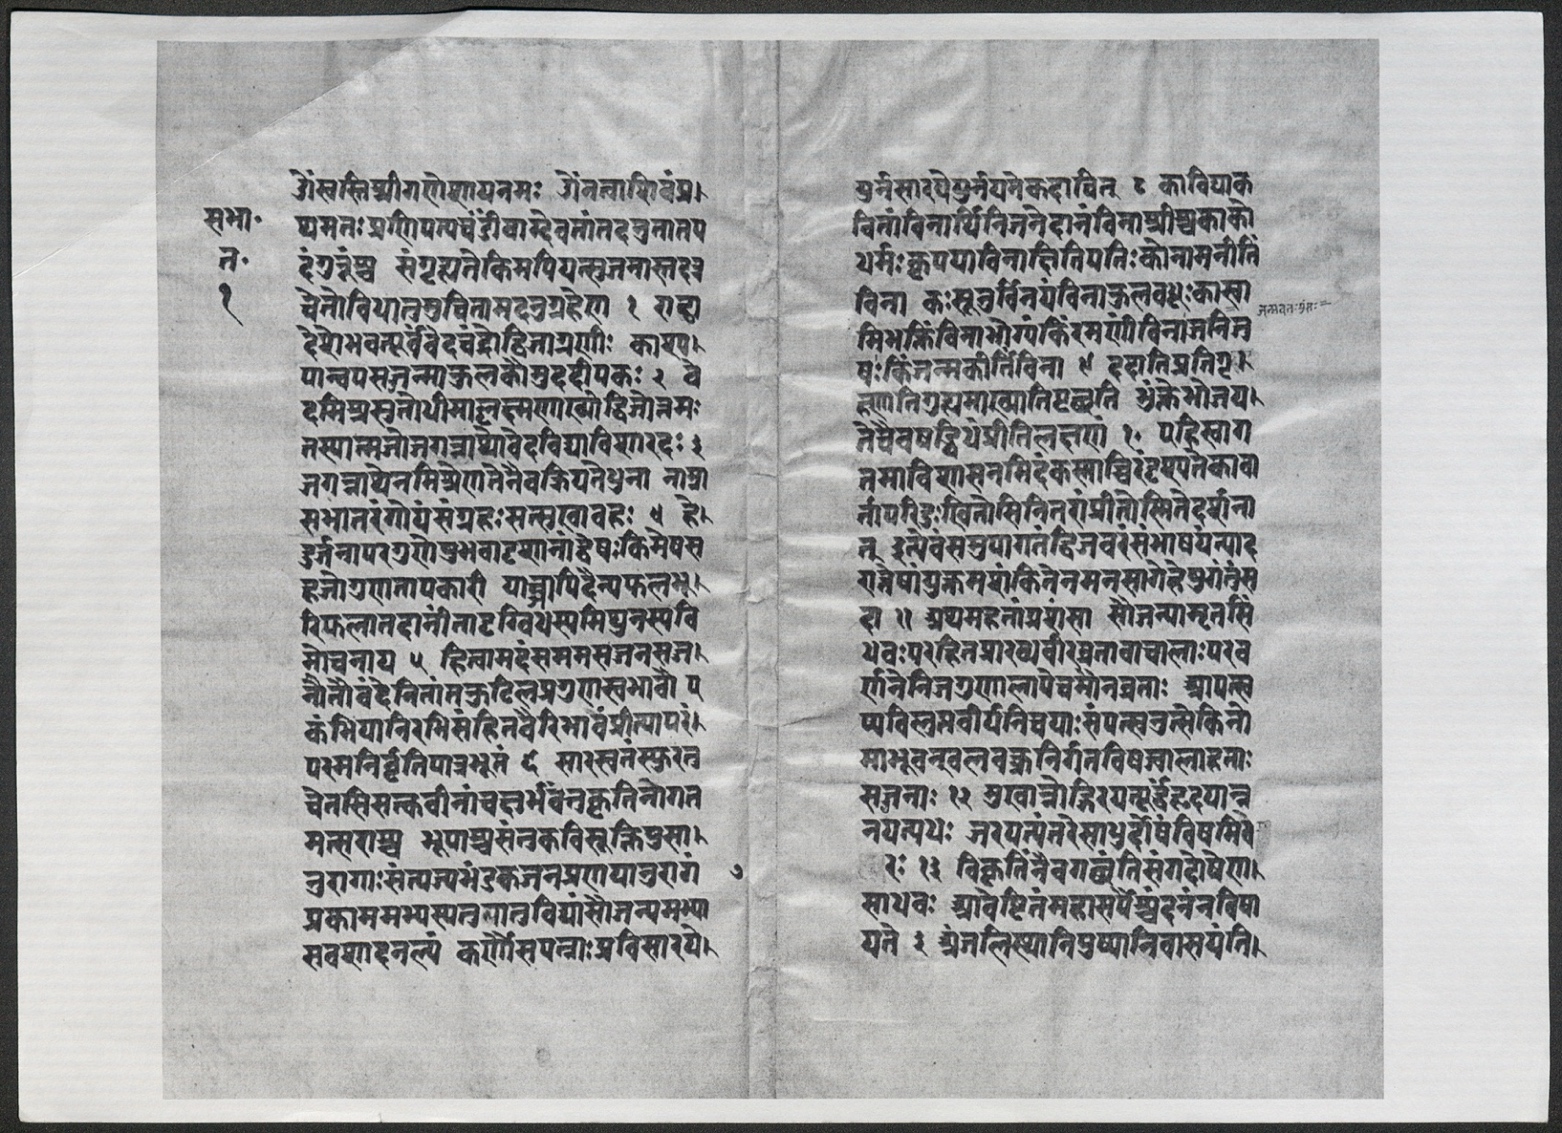 ॐस्वस्तिश्रीगणेशायनमः ॐनत्वाशिवंप्र।
सभा॰
थमतःप्रणिपत्यचंडीवाग्देवतांतदनुतातप
त॰
दंगुरूंश्च संगृह्यतेकिमपियत्सुजनास्तदत्र
१
चेतोविधातुमुचितामदनुग्रहेण १ शद्दा
देशेभवत्पूर्वंवेदचंद्रोद्विजाग्रणीः काश्यप।
पान्वयसजन्माकुलकौमुददीपकः २ वे
दमिश्रसुतोधीमाल्लक्ष्मणाख्योद्विजोत्तमः
तस्यात्मजोजगन्नाथोवेदविद्याविशारदः ३
जगन्नाथेनमिश्रेणतेनैवक्रियतेधुना नाम्ना
सभातरंगोयंसंग्रहःसत्सुखावहः ४ हे।
दुर्जनापरगुणेप्रभवादृशानांद्वेषःकिमेषस
हजोगुणतापकारी याञ्चापिदैन्यफलभू।
रिफलातदानींतादृग्विधस्यमिथुनस्यवि
मोचनाय ५ हित्वामदंसममसज्जनसज्ज।
नौतौवंदेनितांतकुटिलप्रगुणस्वभावौ ए
कंभियानिरभिसंहितवैरिभावंप्रीत्यापरं।
परमनिर्वृतिपात्रभूतं ६ सारस्वतंस्फुरत
चेतसिसत्कवीनांचक्षुर्भवेनकृतिनोगत
मत्सराश्च भूपाश्चसंतुकविसूक्तिषुसा।
नुरागाःसंत्यज्यभंडकजनप्रणयानुरागं
प्रकाममभ्यस्यतुनामविद्यांसौजन्यमभ्या
सवशादनल्पं कर्णौसपत्न्याःप्रविसारये।
द्युर्नसारयेद्युर्नयमेकदाचित् ८ काविद्याक
वितांविनार्थिनिजनेदानंविनाश्रीश्चकाको
धर्मःकृपयाविनाक्षितिपतिःकोनामनीतिं
विना कःसूनुर्विनयंविनाकुलवधूःकास्वा
मिभक्तिंविनाभोग्यंकिंरमणींविनाजनिजु
षःकिंजन्मकीर्तिंविना ९ ददातिप्रतिगृ।
ह्णातिगुह्यमाख्यातिपृच्छति भुंक्तेभोजय।
तेचैवषड्विधंप्रीतिलक्षणं १॰ एहिस्वाग
तमाविशासनमिदंकस्माच्चिरंदृश्यतेकावा
र्तापरिदुःखितोसिनितरांप्रीतोस्मितेदर्शना
त् इत्येवंसमुपागतंद्विजवरंसंभाषयंत्याद
रात्तेषांयुक्तमशंकितेनमनसागेहेषुगंतुंस
दा ११ अथमहतांप्रशंसा सौजन्यामृतसिं
धवःपरहितप्रारब्धवीरव्रतावाचालाःपरव
र्णनेनिजगुणालापेचमौनव्रताः आपत्स्व
प्यविलुप्तवीर्यनिचयाःसंपत्स्वनुत्सेकिनो
माभूवन्खलवक्त्रनिर्गतविषज्वालाहताः
सज्जनाः १२ मुखान्नोद्गिरयत्पूर्वंहृदयान्न
नयत्यधः जरयत्यंतरेसाधुर्दोषंविषमिवे
रः १३ विकृतिंनैवगच्छंतिसंगदोषेण।
साधवः आवेष्टितंमहासर्पैश्चंदनंनविषा
यते ३ अंजलिस्थानिपुष्पानिवासयंति।